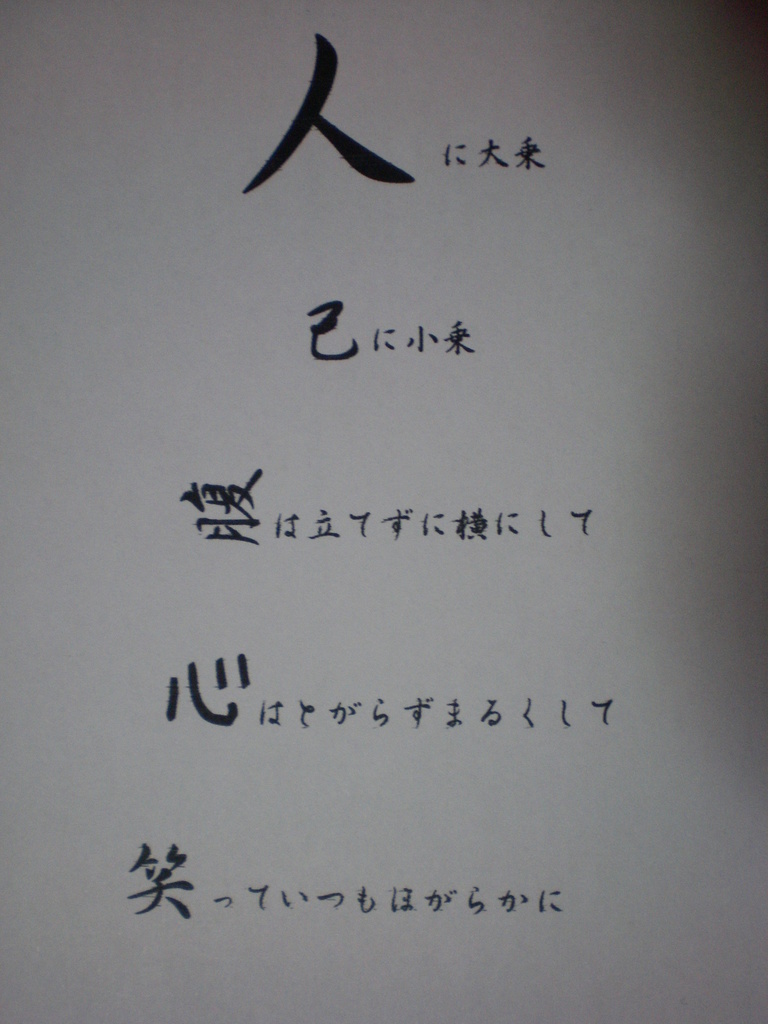 人に大乗
己に小乗
腹は立てずに横にして
心はとがらずまるくして
笑っていつもほがらかに